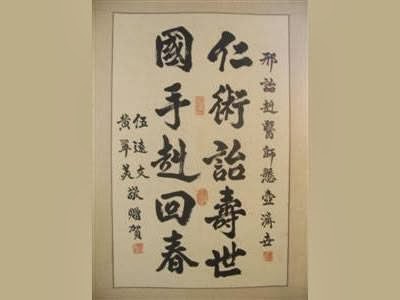 邢詒赳醫師懸壺濟世
仁術詒壽世
國手赳回春
伍遠文
黃敬贈賀